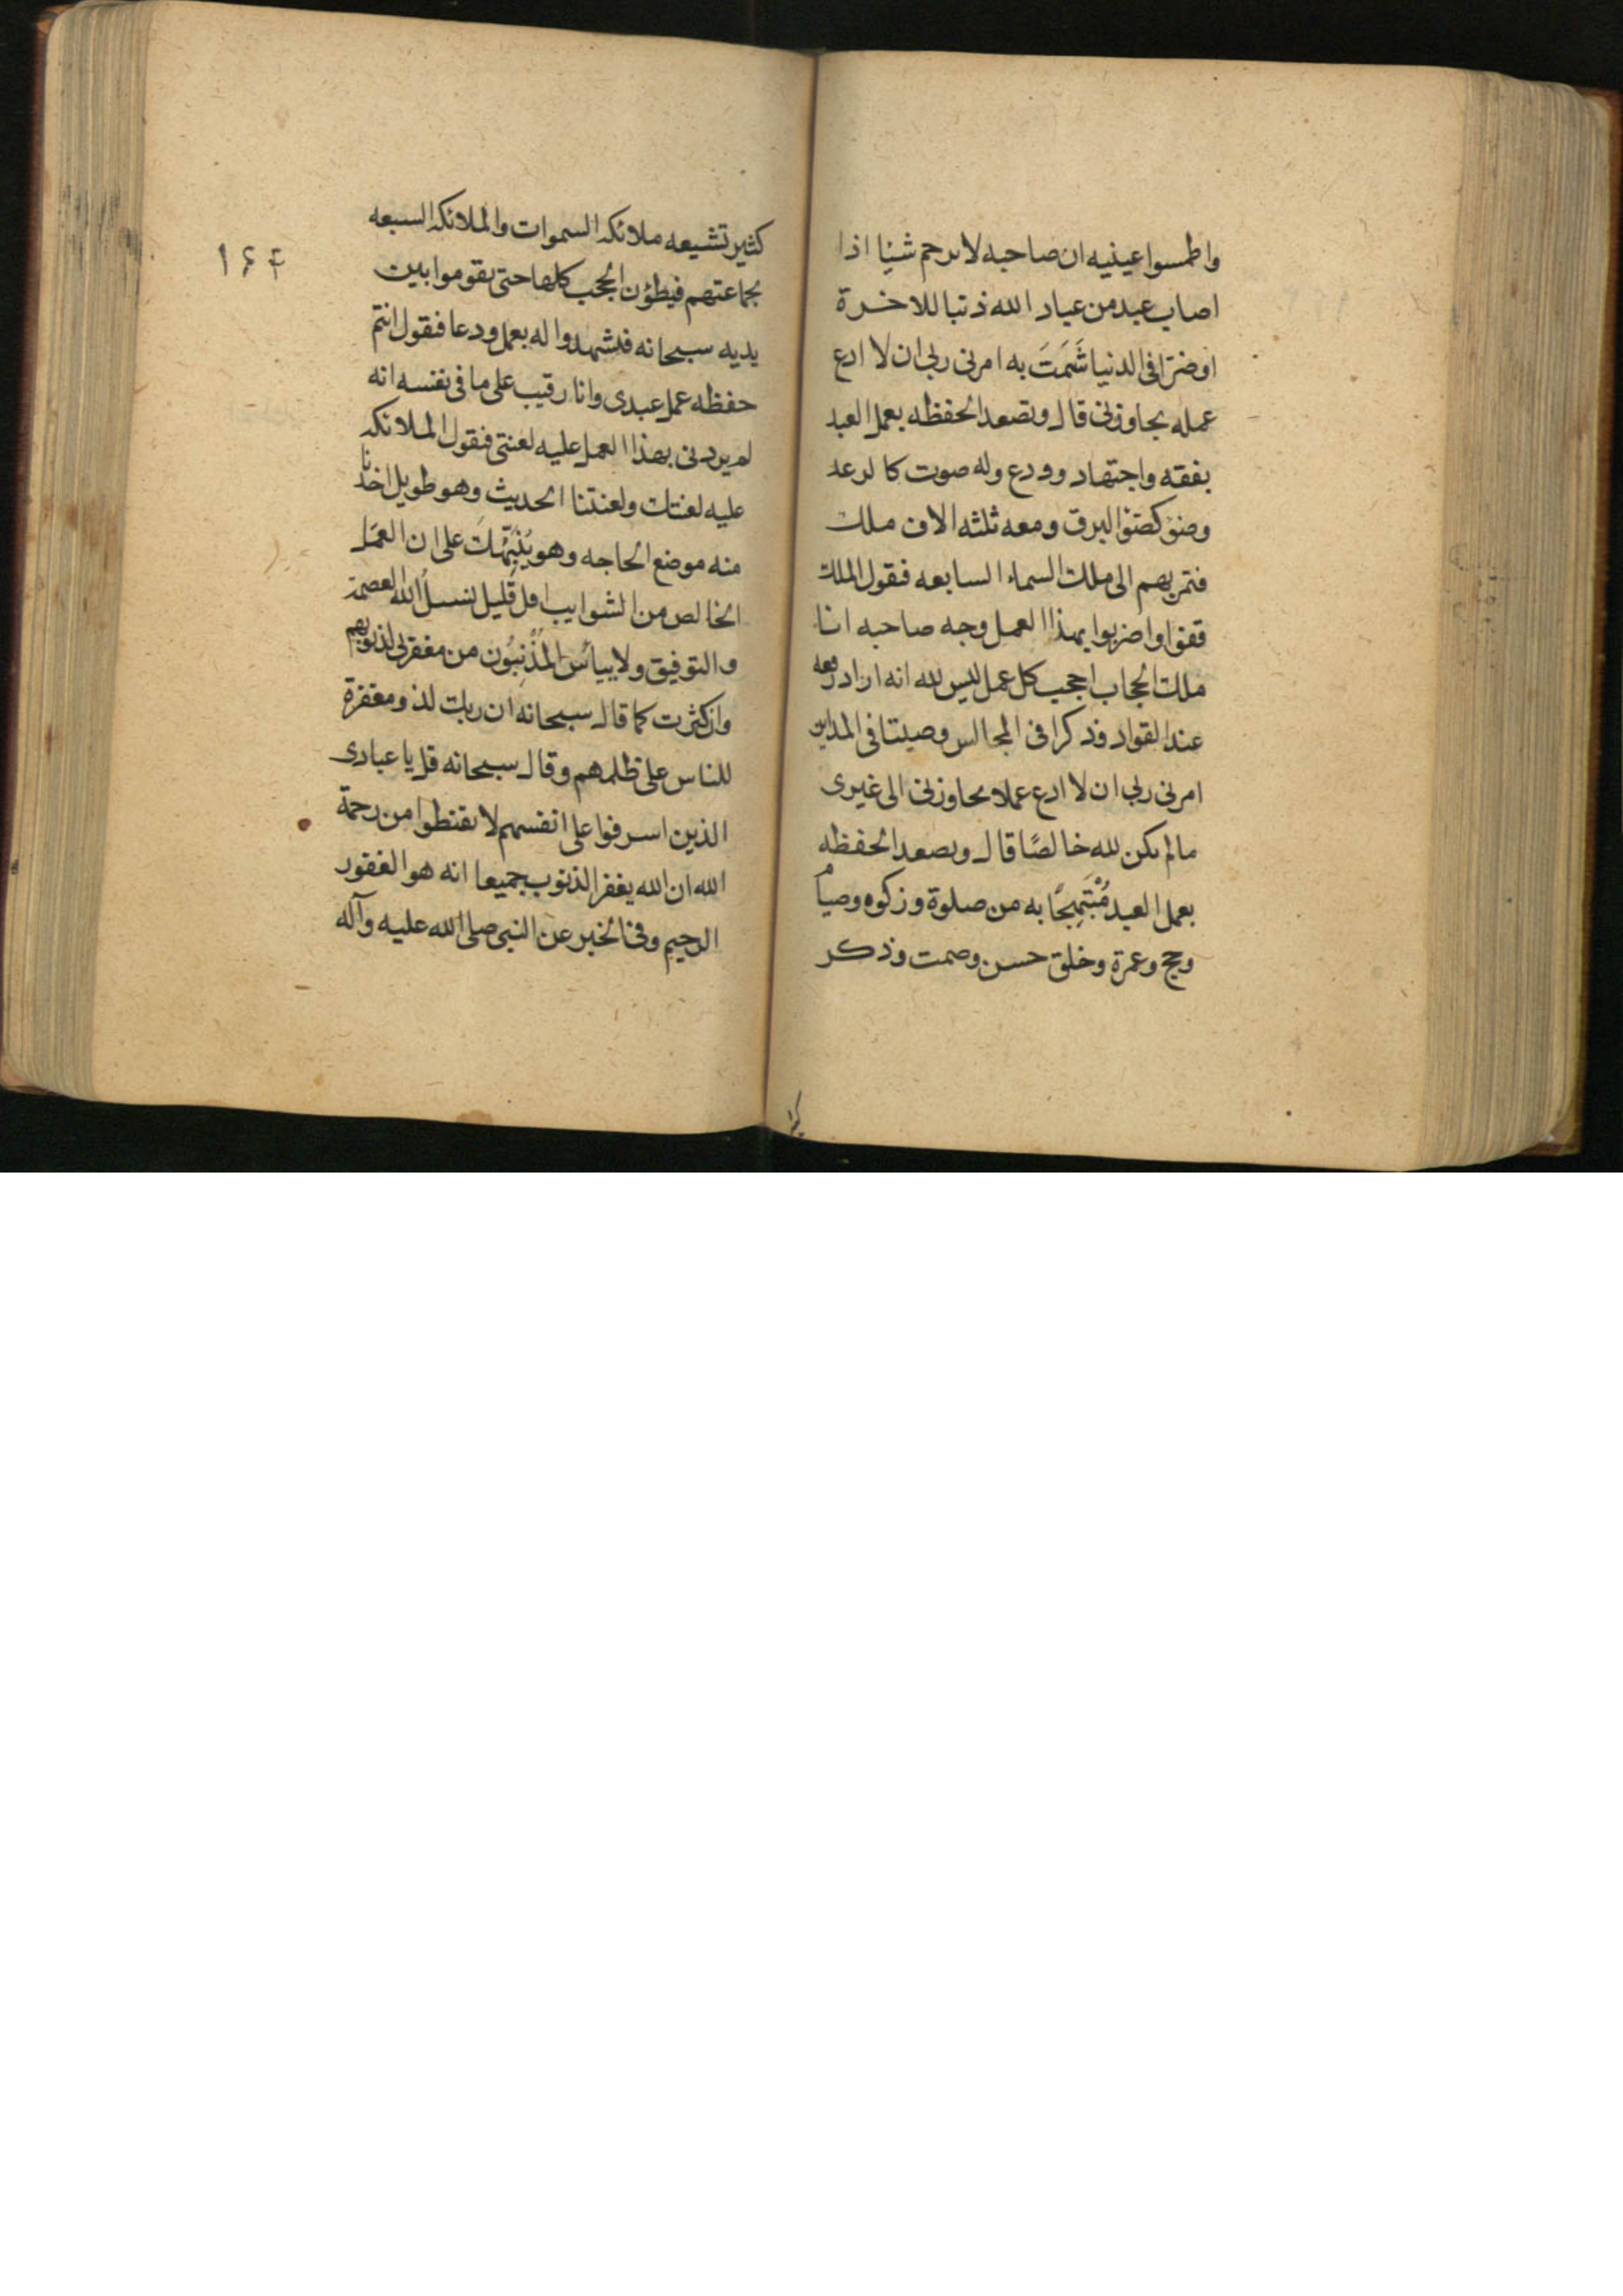 واطمسوا عينيه ان صاحبه لا يرحم شيئا اذا
اصاب عبد من عباد الله ذنبا للاخرة
او ضرا فى الدنيا شَمَتَ به امرنى ربى ان لا ادع
عمله يجاوزنى قال وتصعد الحفظه بعمل العبد
بفقه واجتهاد وورع وله صوت كالرعد
وضوٌ كضوٌ البرق ومعه ثلثه الاف ملك
فتمر بهم الى ملك السماء السابعه فيقول الملك
قفوا واضربوا بهذا العمل وجه صاحبه انا
ملك الحجاب احجب كل عمل ليس لله انه اراد رفعه
عند القواد وذكرا فى المجالس وصيتا فى المداين
امرنى ربى ان لا ادع عملا يجاوزنى الى غيرى
ما لم يكن لله خالصًا قال وتصعد الحفظه
بعمل العبد مُبْتَهِجًا به من صلوة وزكوه وصيام
وحج وعمرة وخلق حسن وصمت وذكر
كثير تشيعه ملائكه السموات والملائكه السبعه
بجماعتهم فيطؤن الحجب كلها حتى يقوموا بين
يديه سبحانه فيشهدوا له بعمل ودعا فيقول انتم
حفظه عمل عبدى وانا رقيب على ما فى نفسه انه
لم يردنى بهذا العمل عليه لعنتى فيقول الملائكه
عليه لعنتك ولعنتنا الحديث وهو طويل اخذنا
منه موضع الحاجه وهو يُنَبِّهُكَ على ان العمل
الخالص من الشوايب اقل قليل نسئل الله العصمة
والتوفيق ولا ييأس المذنِبُون من مغفرتى لذنوبهم
وان كثرت كما قال سبحانه ان ربك لذو مغفرة
للناس على ظلمهم وقال سبحانه قل يا عبادى
الذين اسرفوا على انفسهم لا تقنطوا من رحمة
الله ان الله يغفر الذنوب جميعا انه هو الغفور
الرحيم وفى الخبر عن النبى صلى الله عليه وآله